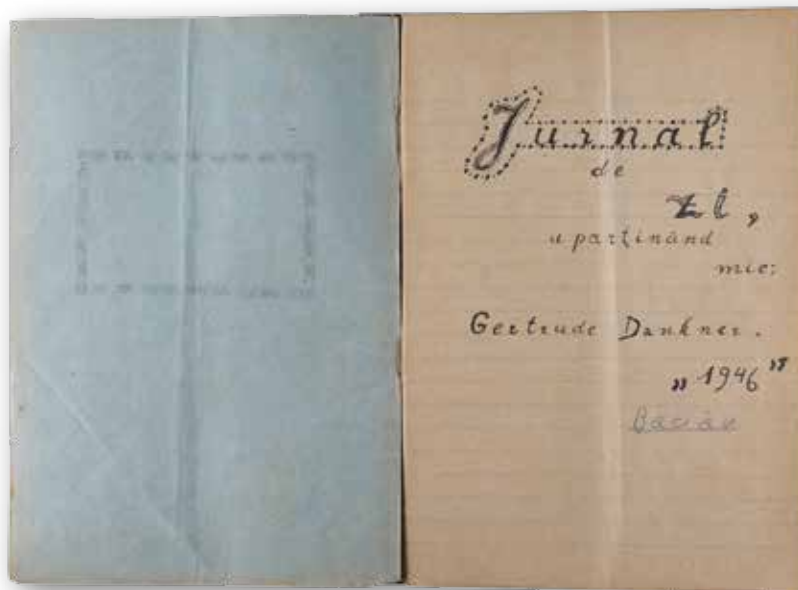 Jurnal
de
zi,
aparținând
mie:
Gertrude Dankner.
„1946”
Bacău